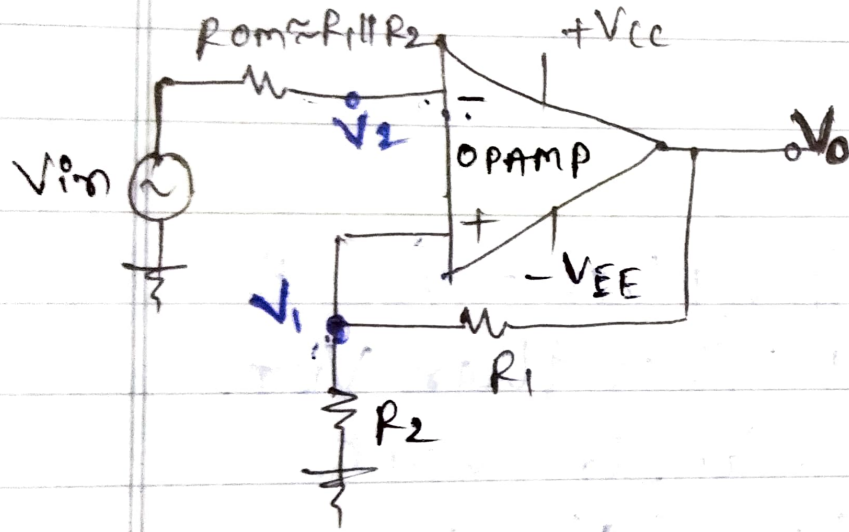 ROM≈R1||R2
+VCC
V2
-
Vin
OPAMP
Vo
+
-VEE
V1
R1
R2